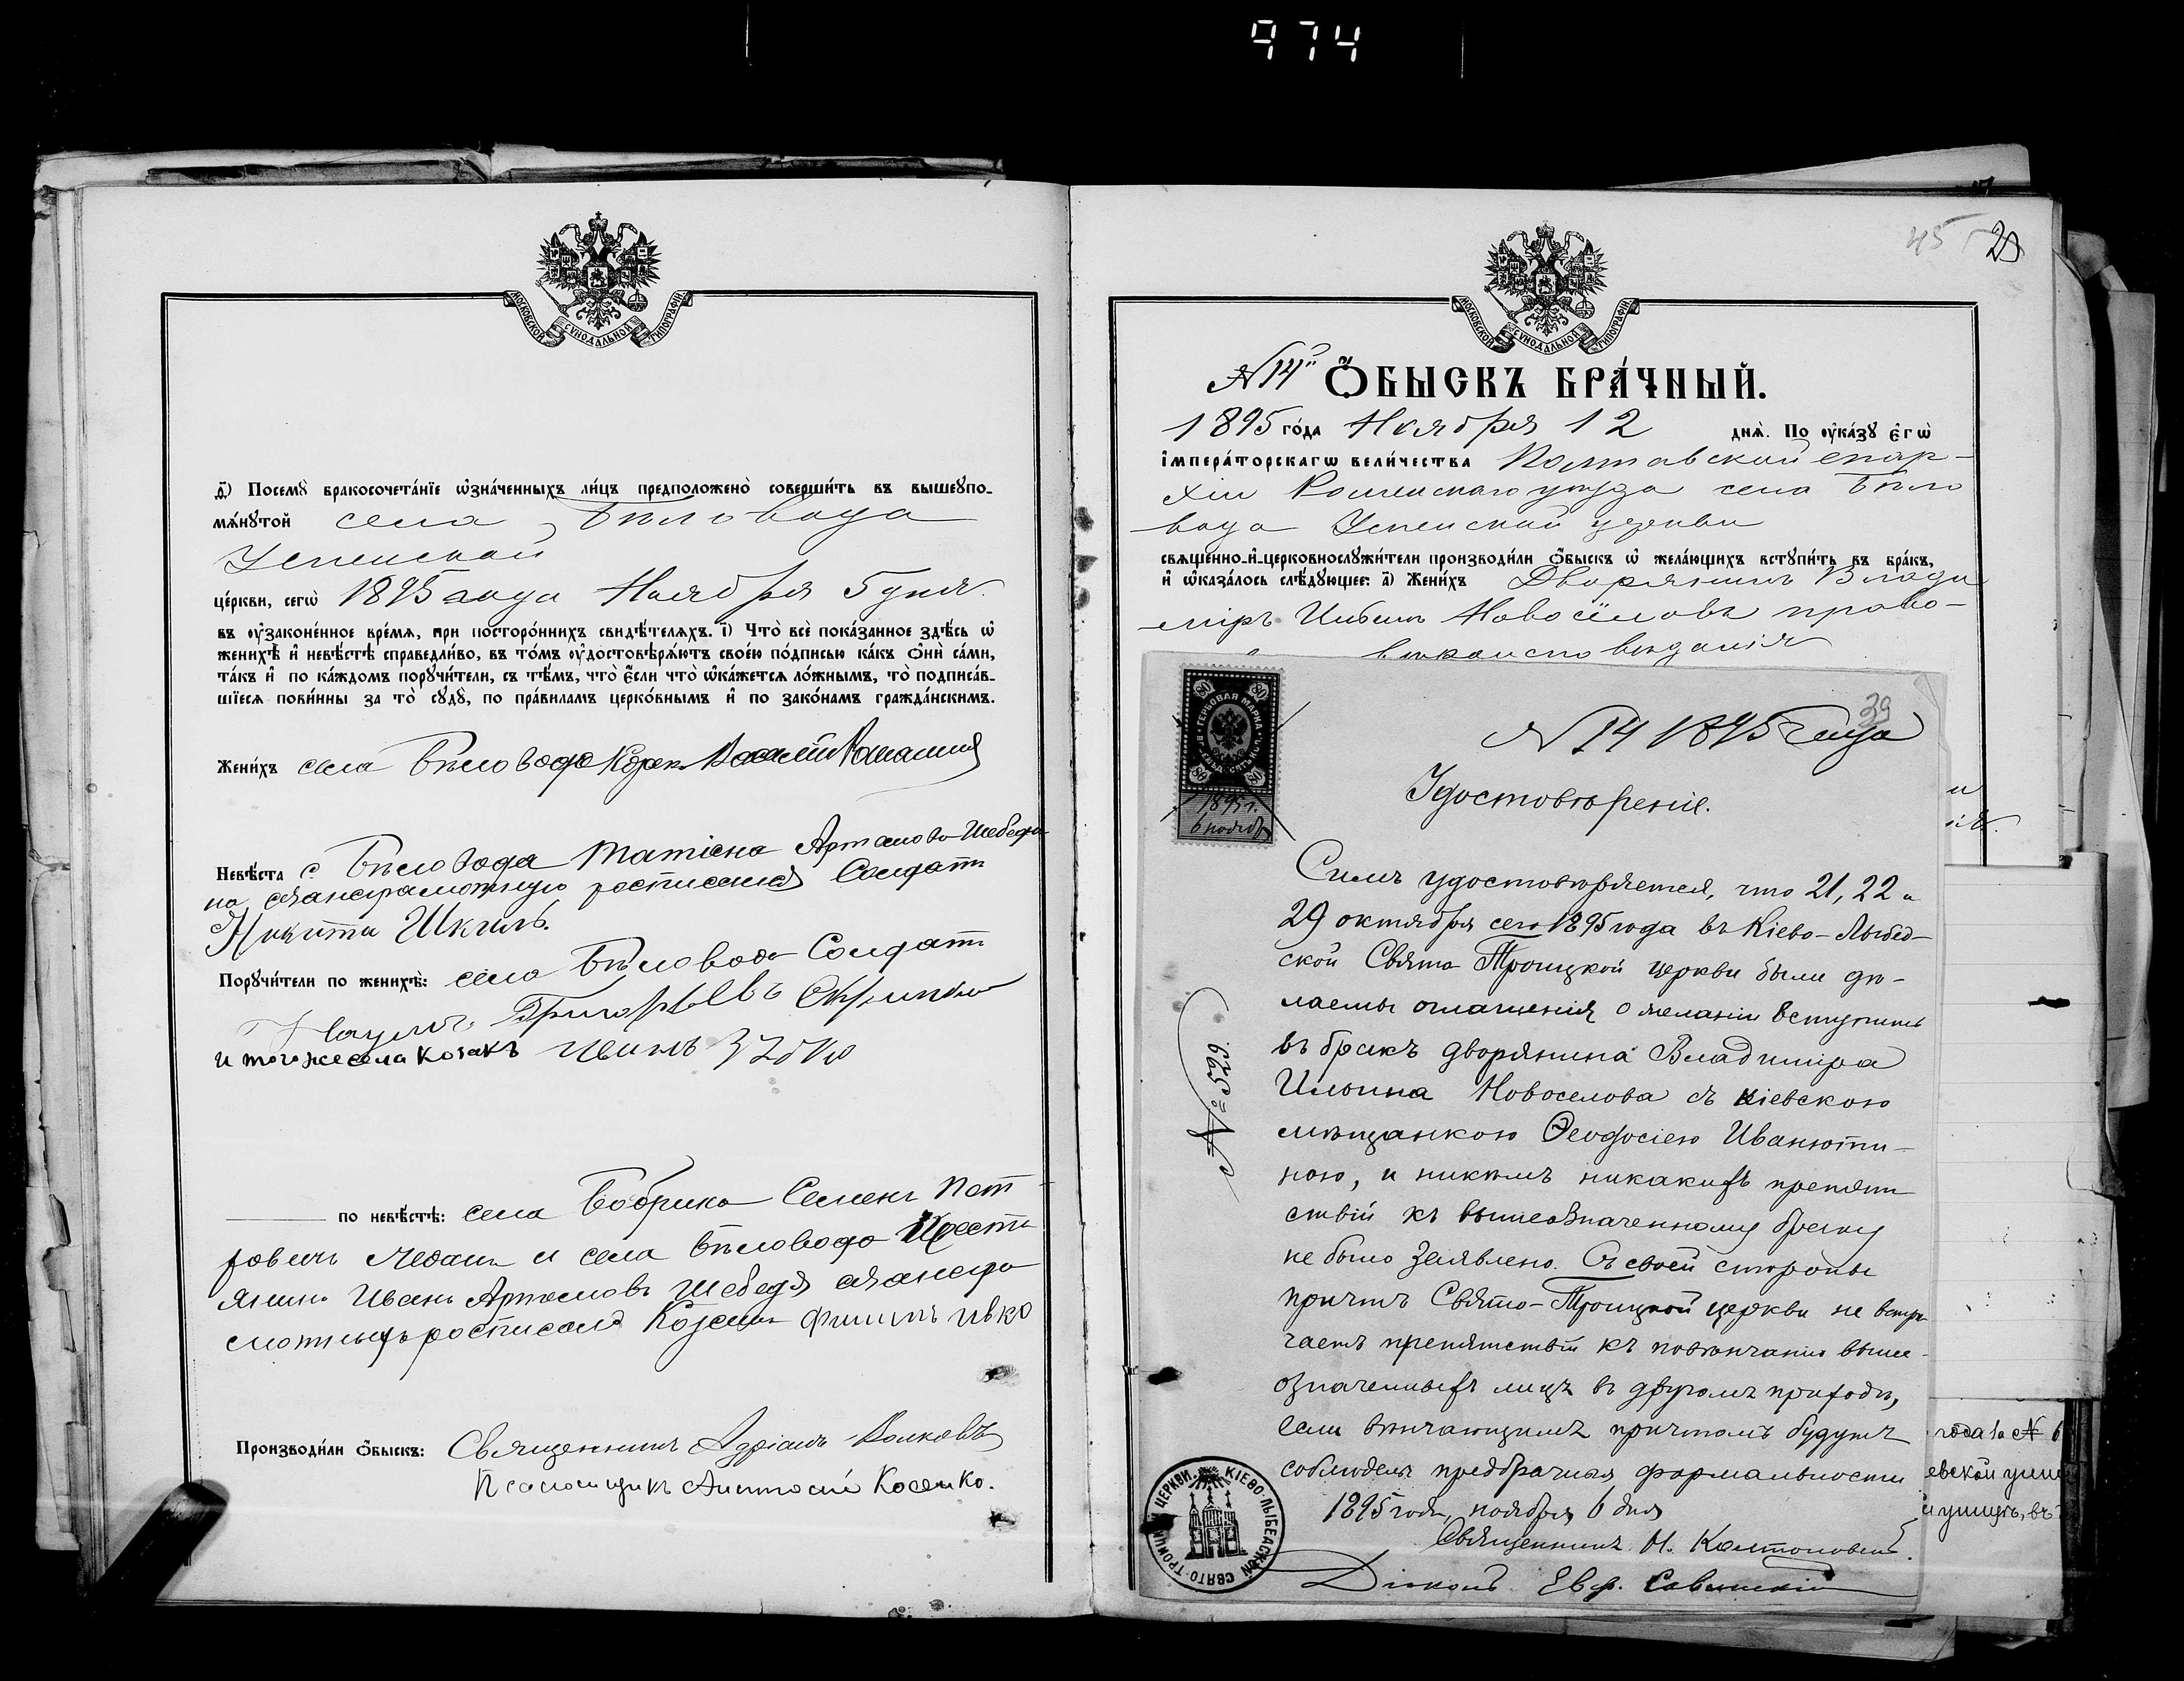 974
МОСКОВСКОЙ СѴНОДАЛЬНОЙ ТИПОГРАФІИ
д҃) Посемꙋ бракосочета́нїе ѡ҆зна́ченныхъ ли́цъ предположено̀ соверши́ть въ вышеꙋпо-
мѧ́нꙋтой села Бѣловода
Успенской
це́ркви, сегѡ̀ 1895 года Ноября 5 дня
въ ᲂу҆законе́нное вре́мѧ, при посторо́ннихъ свидѣ́телѧхъ. і҃) Что̀ всѐ пока́занное здѣ́сь ѡ҆
женихѣ̀ и҆ невѣ́стѣ справедли́во, въ то́мъ ᲂу҆достовѣрѧ́ютъ свое́ю по́дписью ка́къ ѻ҆нѝ са́ми,
та́къ и҆ по ка́ждомъ порꙋчи́тели, съ тѣ́мъ, что̀ є҆́сли что̀ ѡ҆ка́жетсѧ ло́жнымъ, то̀ подписа́в-
шїесѧ пови́нны за то̀ сꙋдꙋ̀, по пра́виламъ церко́внымъ и҆ по зако́намъ гражда́нскимъ.
Жени́хъ села Бѣловода Козак
Невѣ́ста с Бѣловода Татіана Артамова Шебедя
на росписался Солдатъ
Никита Шкиль.
Порꙋчи́тели по женихѣ̀: села Бѣловода Солдатъ
Наумъ Григорьевъ
и тогоже села козакъ Иванъ Зубко
по невѣ́стѣ: села Бобрика Семенъ Пет
ровичъ и села Бѣловода Крестъ
янинъ Иванъ Артамовъ Шебедя а за негра
мотныхъ росписался Козакъ Филипъ Ивко
Производи́ли ѻ҆́быскъ: Священникъ Адріанъ Волковъ
Псаломщикъ Антоній Косенко.
45 29
МОСКОВСКОЙ СѴНОДАЛЬНОЙ ТИПОГРАФІИ
№ 14й Ѻ҆́БЫСКЪ БРА́ЧНЫЙ.
1895 го́да Ноября 12 днѧ̀. По ᲂу҆ка́зꙋ є҆гѡ̀
і҆мпера́торскагѡ вели́чества Полтавской епар-
хіи Роменскаго уѣзда села Бѣло
вода Успенской церкви
свѧще́нно-и҆-церковнослꙋжи́тели производи́ли ѻ҆́быскъ ѡ҆ жела́ющихъ встꙋпи́ть въ бра́къ,
и҆ ѡ҆каза́лось слѣ́дꙋющее: а҃) Жени́хъ Дворянинъ Влади
миръ Ильинъ Новосёловъ право-
вѣроисповѣданія
39
80 ГЕРБОВАЯ МАРКА 80
1895 г.
6 нояб.
№ 14 1895 года
Удостовѣреніе.
Симъ удостовѣряется, что 21, 22 и
29 октября сего 1895 года въ Кіево-Лыбед-
ской Свято Троицкой церкви были дѣ-
лаемы оглашенія о желаніи вступить
въ бракъ дворянина Владиміра
Ильина Новоселова съ кіевскою
мѣщанкою Ѳеодосіею Иванюти-
ною, и никѣмъ никакихъ препят
ствій къ вышеозначенному браку
не было заявлено. Съ своей стороны
причтъ Свято-Троицкой церкви не встрѣ-
чаетъ препятствій къ повѣнчанію выше-
означенныхъ лицъ въ другомъ приходѣ,
если вѣнчающимъ причтомъ будутъ
соблюдены предбрачныя формальности
1895 года, ноября 6 дня
Священникъ Н. Колтоновскій.
Діаконъ Евф. Савинскій
№ 529.
КІЕВО-ЛЫБЕДСКОЙ СВЯТО-ТРОИЦКОЙ ЦЕРКВИ.
года за № 6
евской